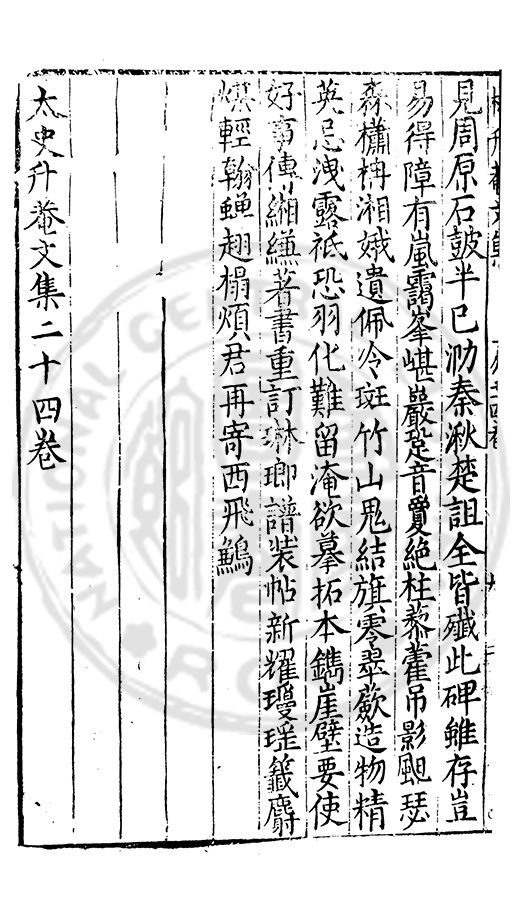 見周原石鼓半已泐秦湫楚詛全皆殱此碑雖存豈
易得障有嵐靄峯嵁巖跫音敻絕柱藜藿吊影颶瑟
森櫹柟湘娥遺佩冷斑竹山鬼結旗零翠蕨造物精
英忌洩露祗恐羽化難留淹欲摹拓本鐫崖壁要使
好事傳緗縑著書重訂琳瑯譜装帖新耀璦瑤籤麝
輕翰蝉翅榻煩君再寄西飛鶼
太史升菴文集二十四卷